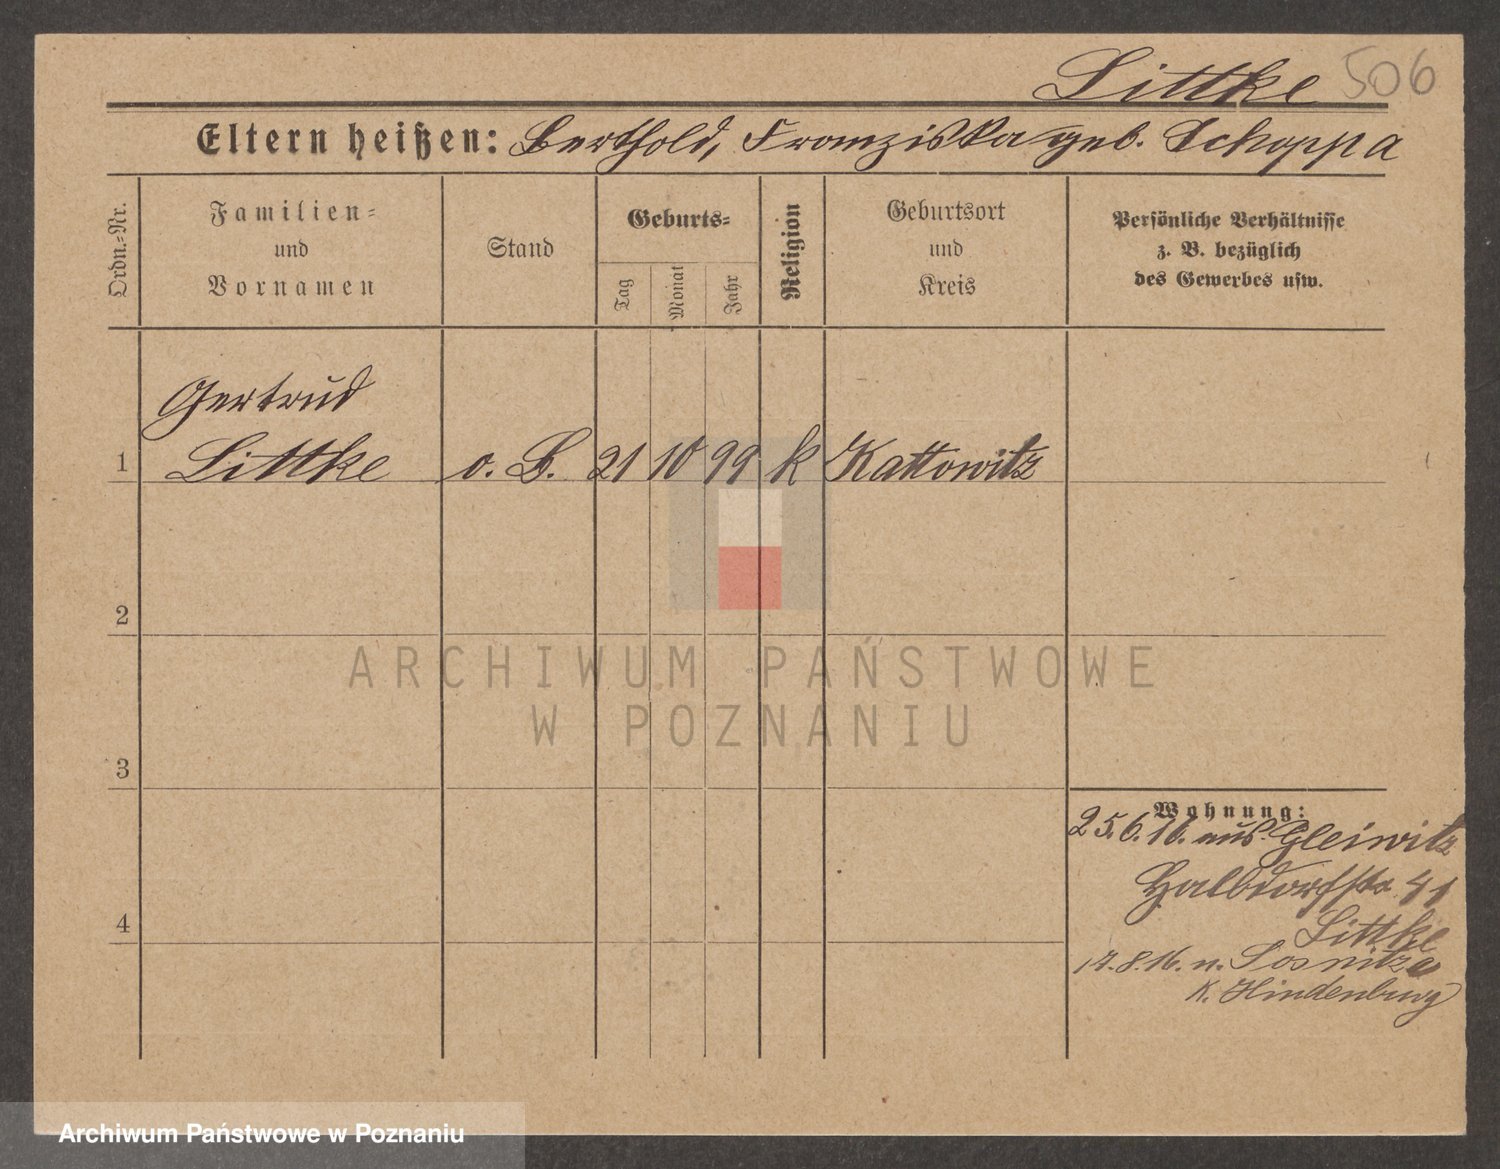 Littke 506
Eltern heißen: Berthold, Franziska geb. Schoppa
Ordn.-Nr.
Familien-
und
Vornamen
Stand
Geburts-
Tag
Monat
Jahr
Religion
Geburtsort
und
Kreis
Persönliche Verhältnisse
z. B. bezüglich
des Gewerbes usw.
Gertrud
1 Littke o. B. 21 10 99 k Kattowitz
2
ARCHIWUM PAŃSTWOWE
W POZNANIU
3
Wohnung:
25.6.16. aus Gleiwitz
Halbdorfstr 41
4
Littke
17.8.16. n. Sosnitza
K. Hindenburg
Archiwum Państwowe w Poznaniu